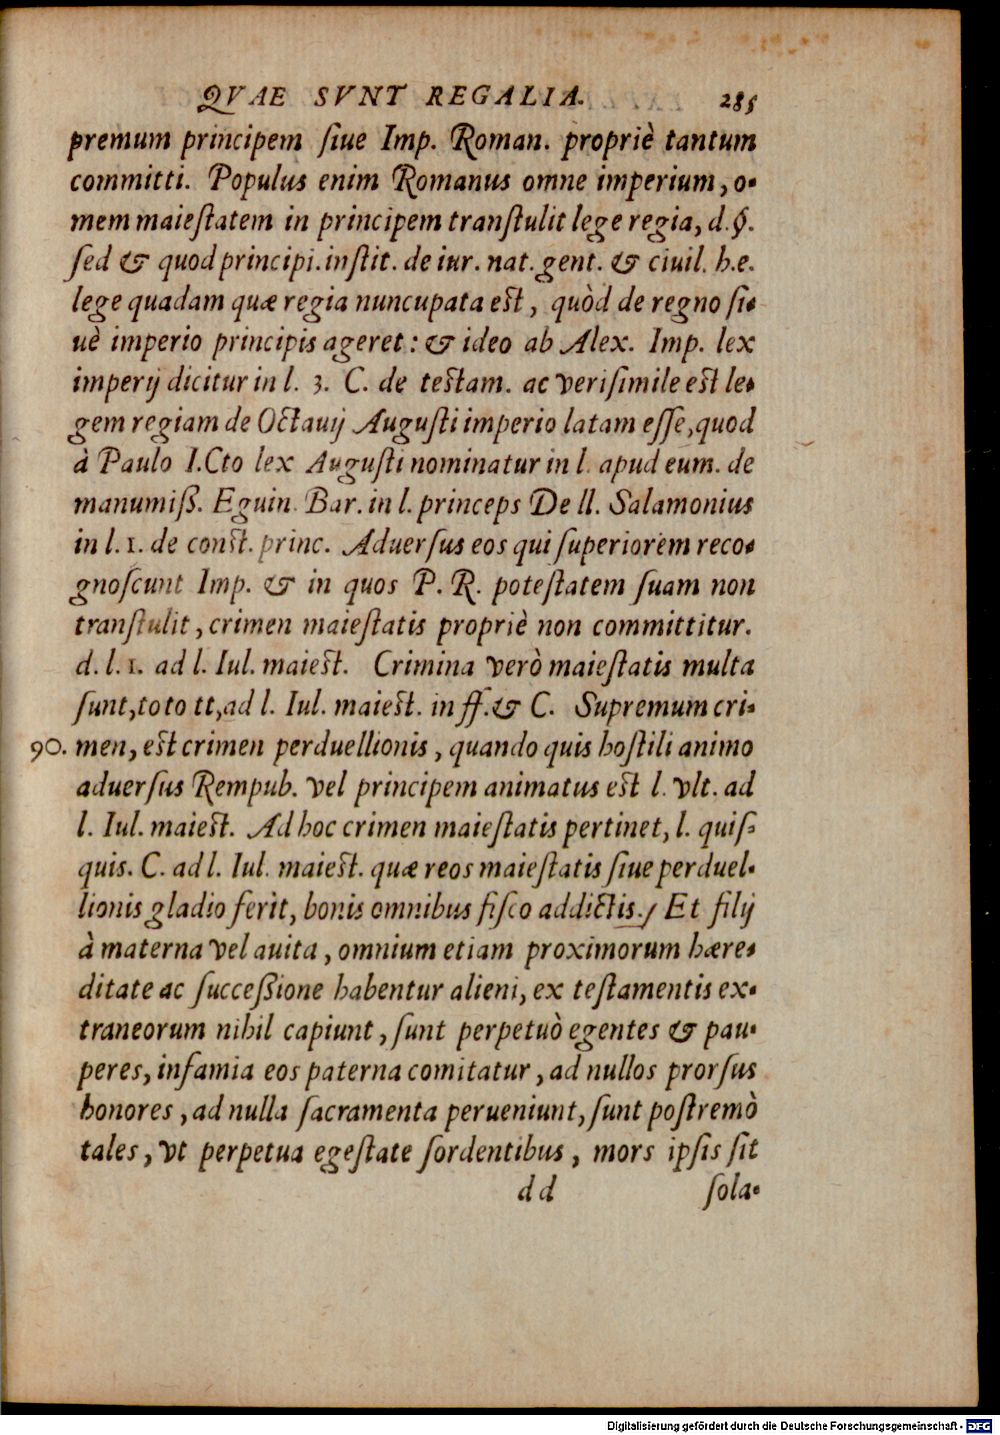 QVAE SVNT REGALIA. 285
premum principem ſiue Imp. Roman. propriè tantum
committi. Populus enim Romanus omne imperium, o-
mem maieſtatem in principem tranſtulit lege regia, d. §.
ſed & quod principi. inſtit. de iur. nat. gent. & ciuil. h.e.
lege quadam quæ regia nuncupata eſt, quòd de regno ſi-
uè imperio principis ageret: & ideo ab Alex. Imp. lex
imperij dicitur in l. 3. C. de teſtam. ac veriſimile eſt le-
gem regiam de Octauij Auguſti imperio latam eſſe, quod
à Paulo I.Cto lex Auguſti nominatur in l. apud eum. de
manumiß. Eguin. Bar. in l. princeps De ll. Salamonius
in l. 1. de conſt. princ. Aduerſus eos qui ſuperiorem reco-
gnoſcunt Imp. & in quos P. R. poteſtatem ſuam non
tranſtulit, crimen maieſtatis propriè non committitur.
d. l. 1. ad l. Iul. maieſt. Crimina verò maieſtatis multa
ſunt, toto tt, ad l. Iul. maieſt. in ff. & C. Supremum cri-
90. men, eſt crimen perduellionis, quando quis hoſtili animo
aduerſus Rempub. vel principem animatus eſt l. vlt. ad
l. Iul. maieſt. Ad hoc crimen maieſtatis pertinet, l. quiſ-
quis. C. ad l. Iul. maieſt. quæ reos maieſtatis ſiue perduel-
lionis gladio ferit, bonis omnibus fiſco addictis. / Et filij
à materna vel auita, omnium etiam proximorum hære-
ditate ac ſucceßione habentur alieni, ex teſtamentis ex-
traneorum nihil capiunt, ſunt perpetuò egentes & pau-
peres, infamia eos paterna comitatur, ad nullos prorſus
honores, ad nulla ſacramenta perueniunt, ſunt poſtremò
tales, vt perpetua egeſtate ſordentibus, mors ipſis ſit
dd ſola-
Digitalisierung gefördert durch die Deutsche Forschungsgemeinschaft - DFG